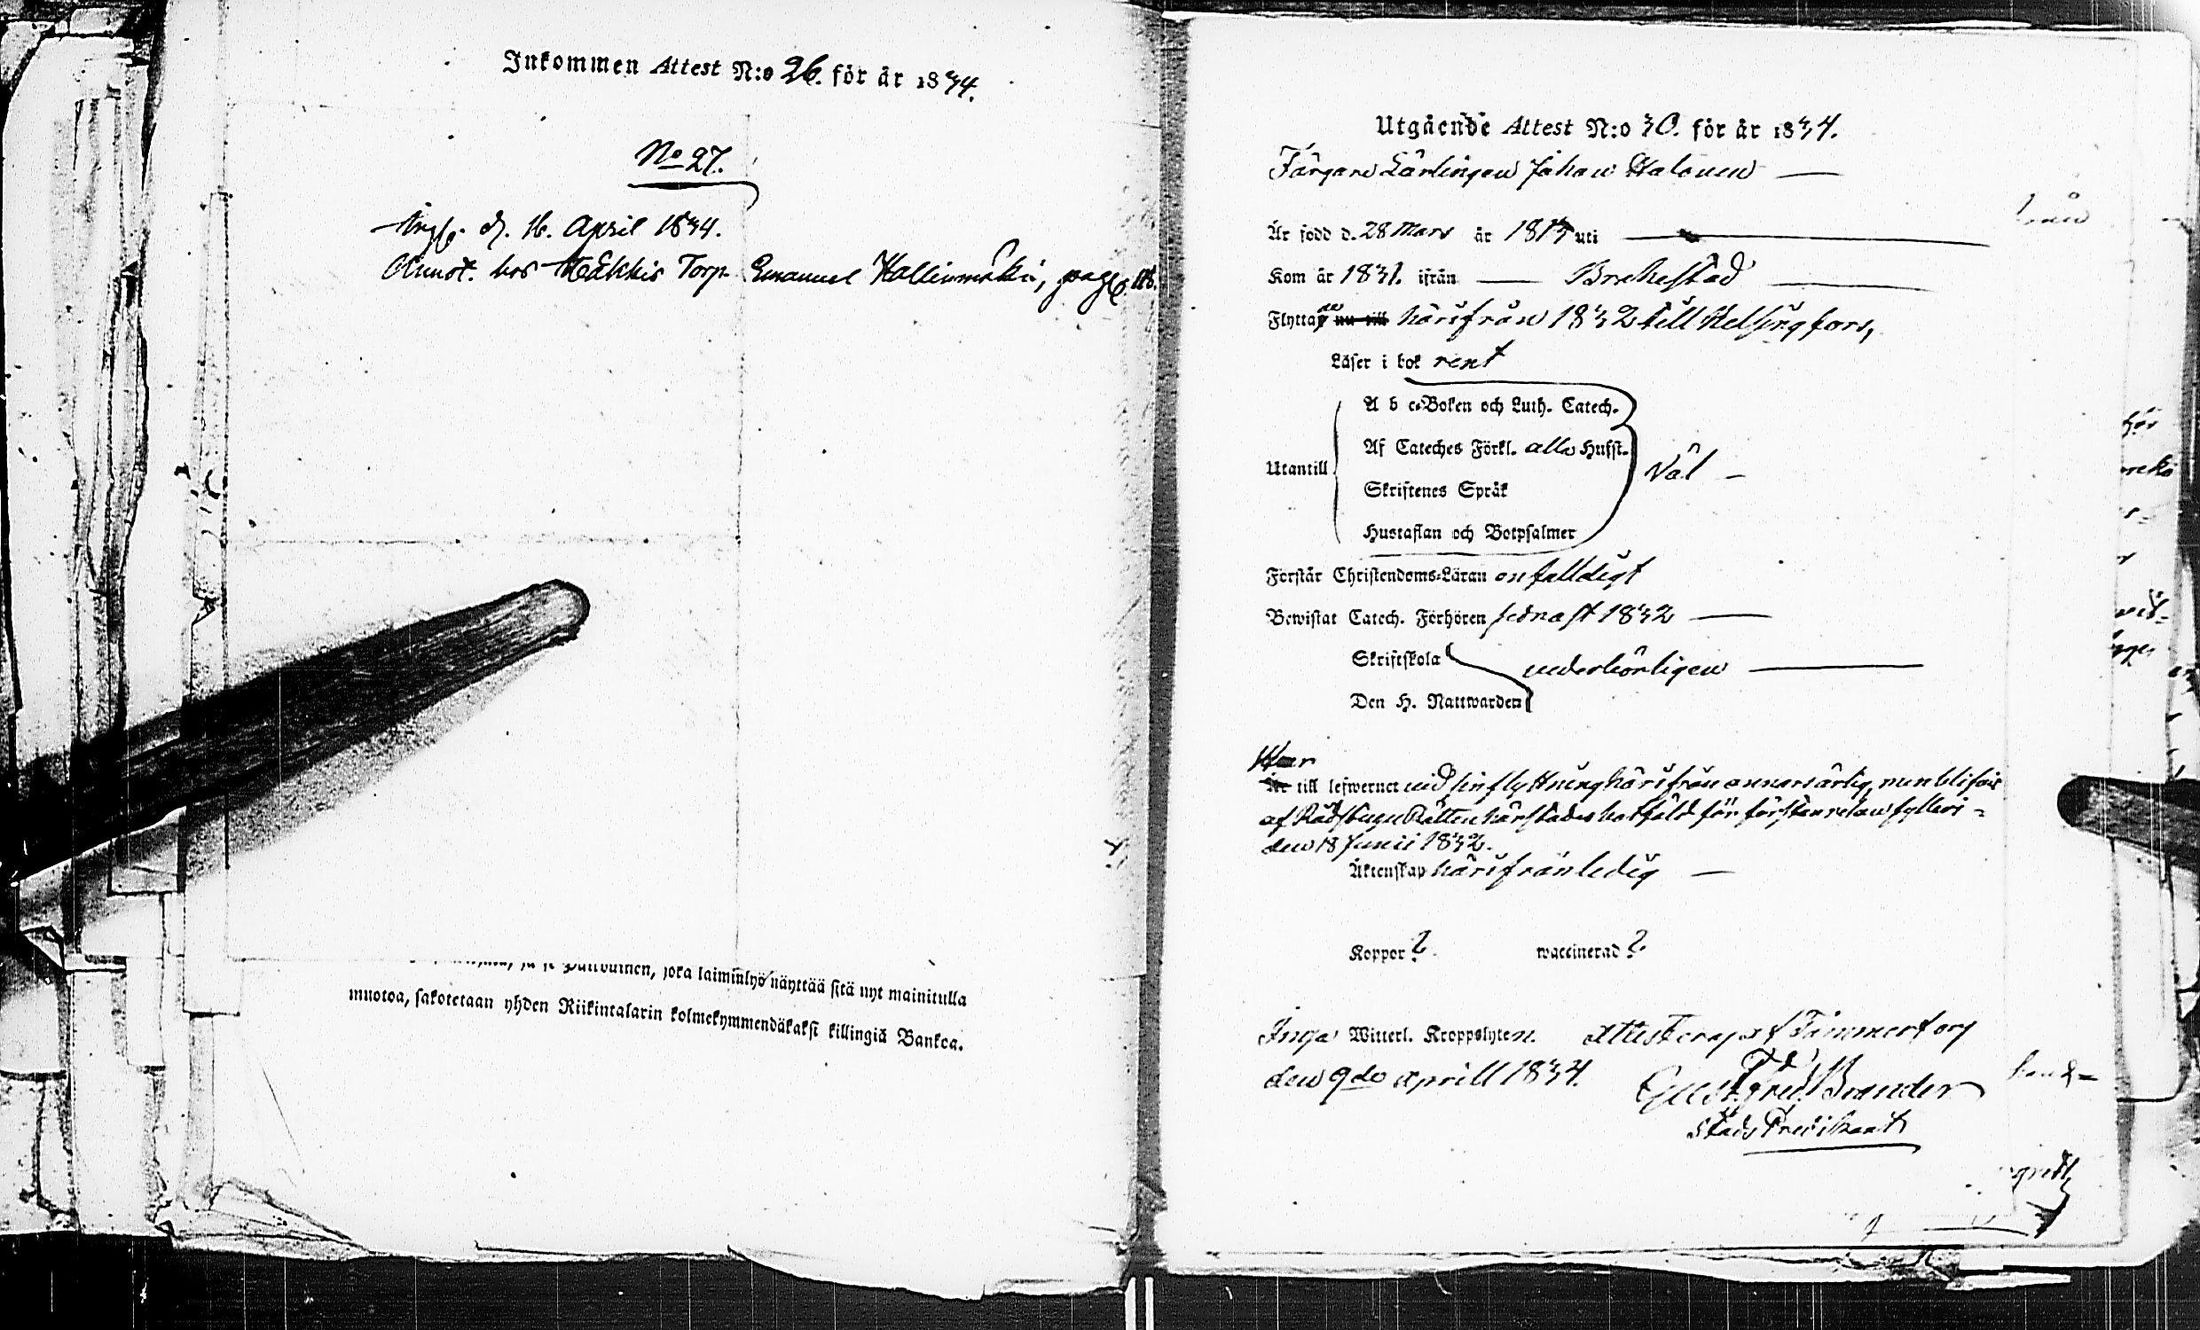 Inkommen Attest N:o 26. för år 1834.
No 27.
d. 16. April 1834.
Annot. hos Torp. Emanuel Kallinmäki, pag.
jota laiminlyö näyttää sitä nyt mainitulla
muotoa, sakotetaan yhden Riikintalarin kolmekymmendäkaksi killingiä Bankca.
Utgående Attest N:o 30. för år 1834.
Färgare Lärlingen Johan Halonen
Är född d. 28 Mars år 1813 uti
Kom år 1831. ifrån Brahestad
Flyttade nu till härifrån 1832 till Helsingfors,
Läser i bok rent
A b c-Boken och Luth. Catech.
Af Cateches Förkl. alla Hufst.
Utantill Väl
Skriftenes Språk
Hustaflan och Botpsalmer
Förstår Christendoms-Läran enfalldigt
Bewistat Catech. Förhören sednast 1832
Skriftskola
vederbörligen
Den H. Nattwarden
War
Är till lefwernet vid sin flyttning härifrån annars ärlig, men blifvit
af Rådstugu Rätten härstädes botfäld för första resan fylleri
den 18 Junii 1832.
Äktenskap härifrån ledig
Koppor ? waccinerad ?
Inga Witterl. Kroppslyten. Attesteras af
den 9de Aprill 1834.
Brander
Stads Predikant